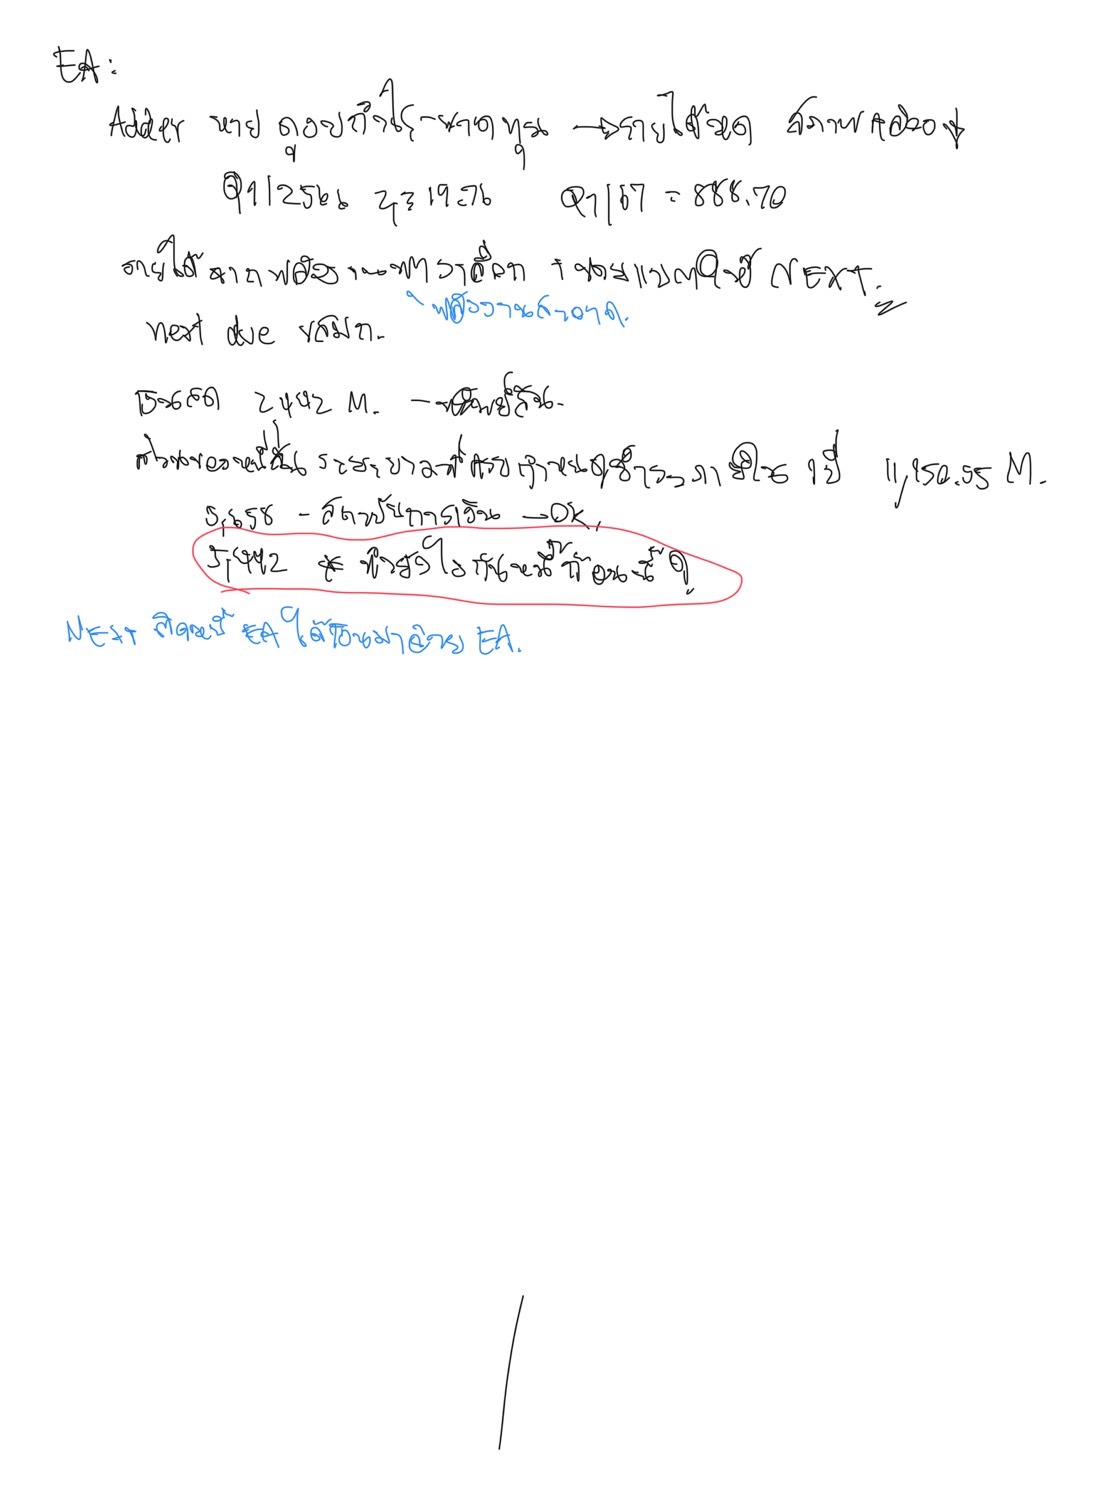 EA:
Adder หาย ดูงบกำไร-ขาดทุน → รายได้หด สภาพคล่อง ↓
Q1/2566 2,319.76 Q1/67 = 888.70
รายได้จากพลังงาน ขายแบตให้ NEXT.
พลังงานสะอาด.
next due ขสมก.
เงินสด 2,442 M. - ทรัพย์สิน.
ส่วนของหนี้สินระยะยาวที่ครบกำหนดชำระภายใน 1 ปี 11,150.55 M.
5,658 - สถาบันการเงิน → OK,
5,492 * ทำยังไงกับหนี้ก้อนนี้
NEXT ติดหนี้ EA ได้โอนมาด้วย EA.